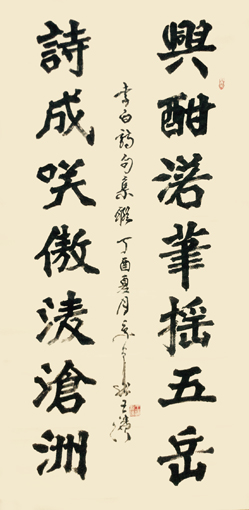 興酣落筆搖五岳
詩成咲傲凌滄洲
李白詩句集聯 丁酉夏月